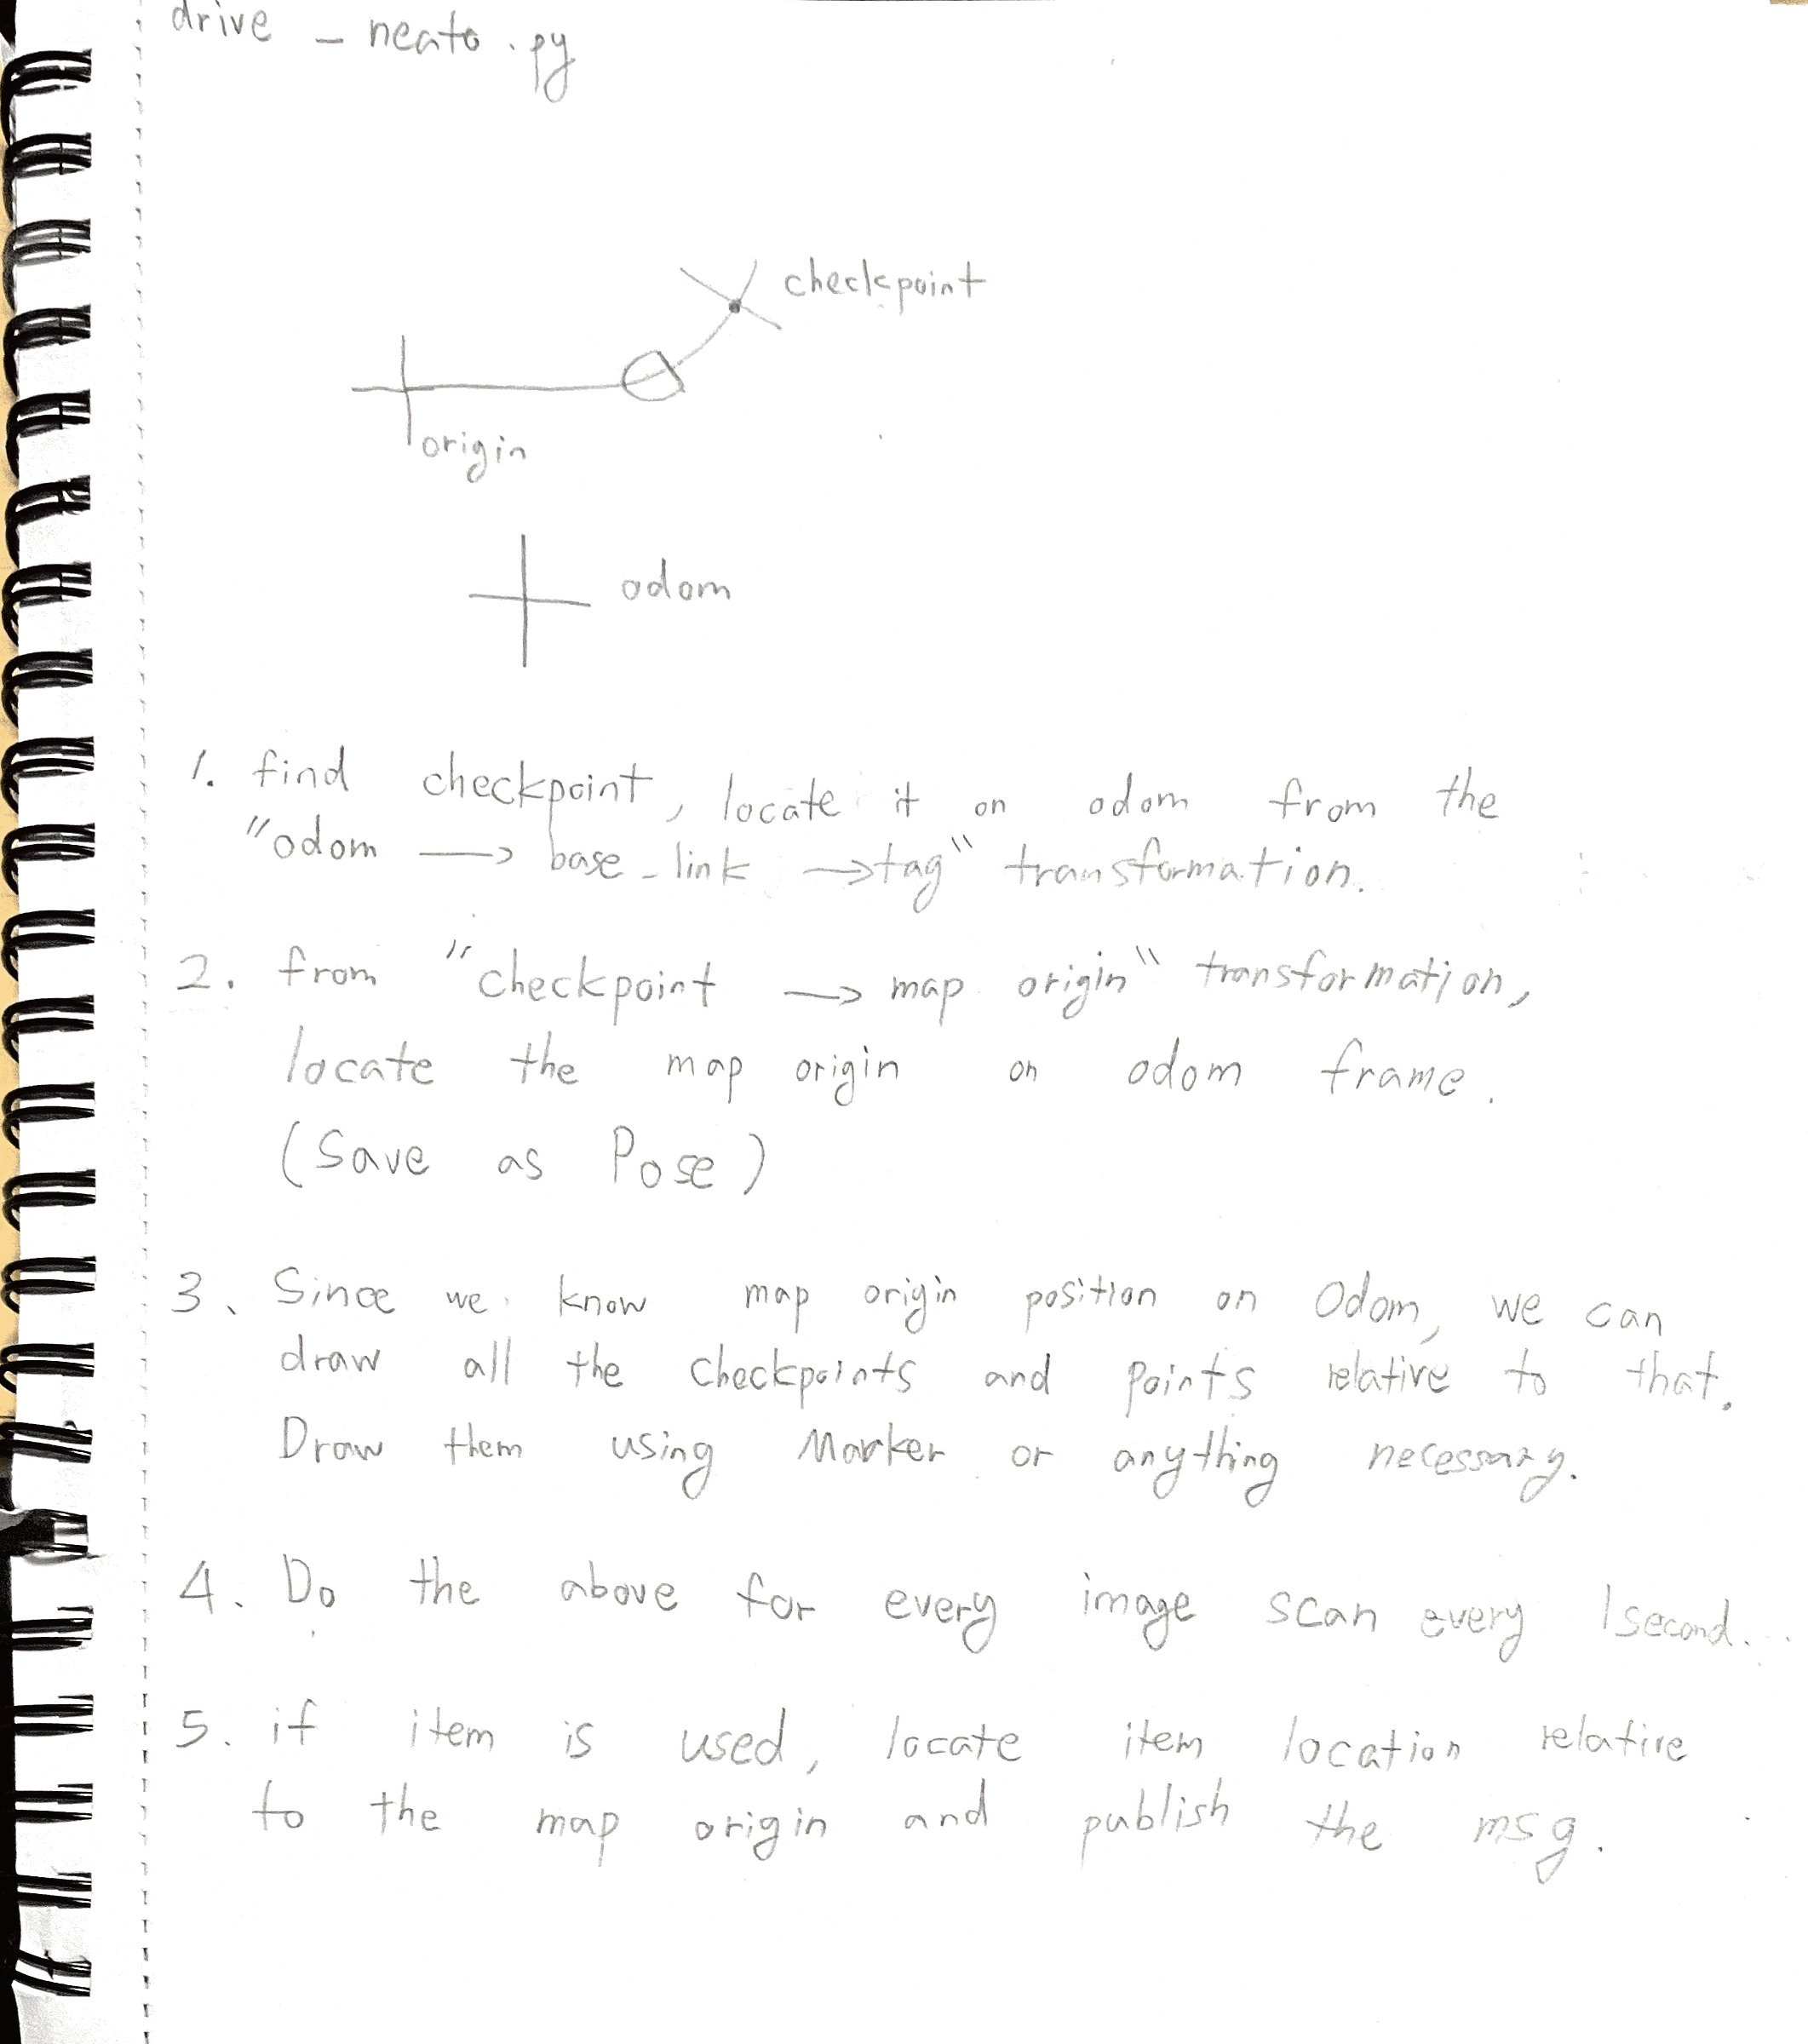 drive - neato.py
checkpoint
origin
odom
1. find checkpoint, locate it on odom from the
"odom → base_link → tag" transformation.
2. from "checkpoint → map origin" transformation,
locate the map origin on odom frame.
(Save as Pose)
3. Since we know map origin position on Odom, we can
draw all the checkpoints and points relative to that.
Draw them using Marker or anything necessary.
4. Do the above for every image scan every 1second..
5. if item is used, locate item location relative
to the map origin and publish the msg.